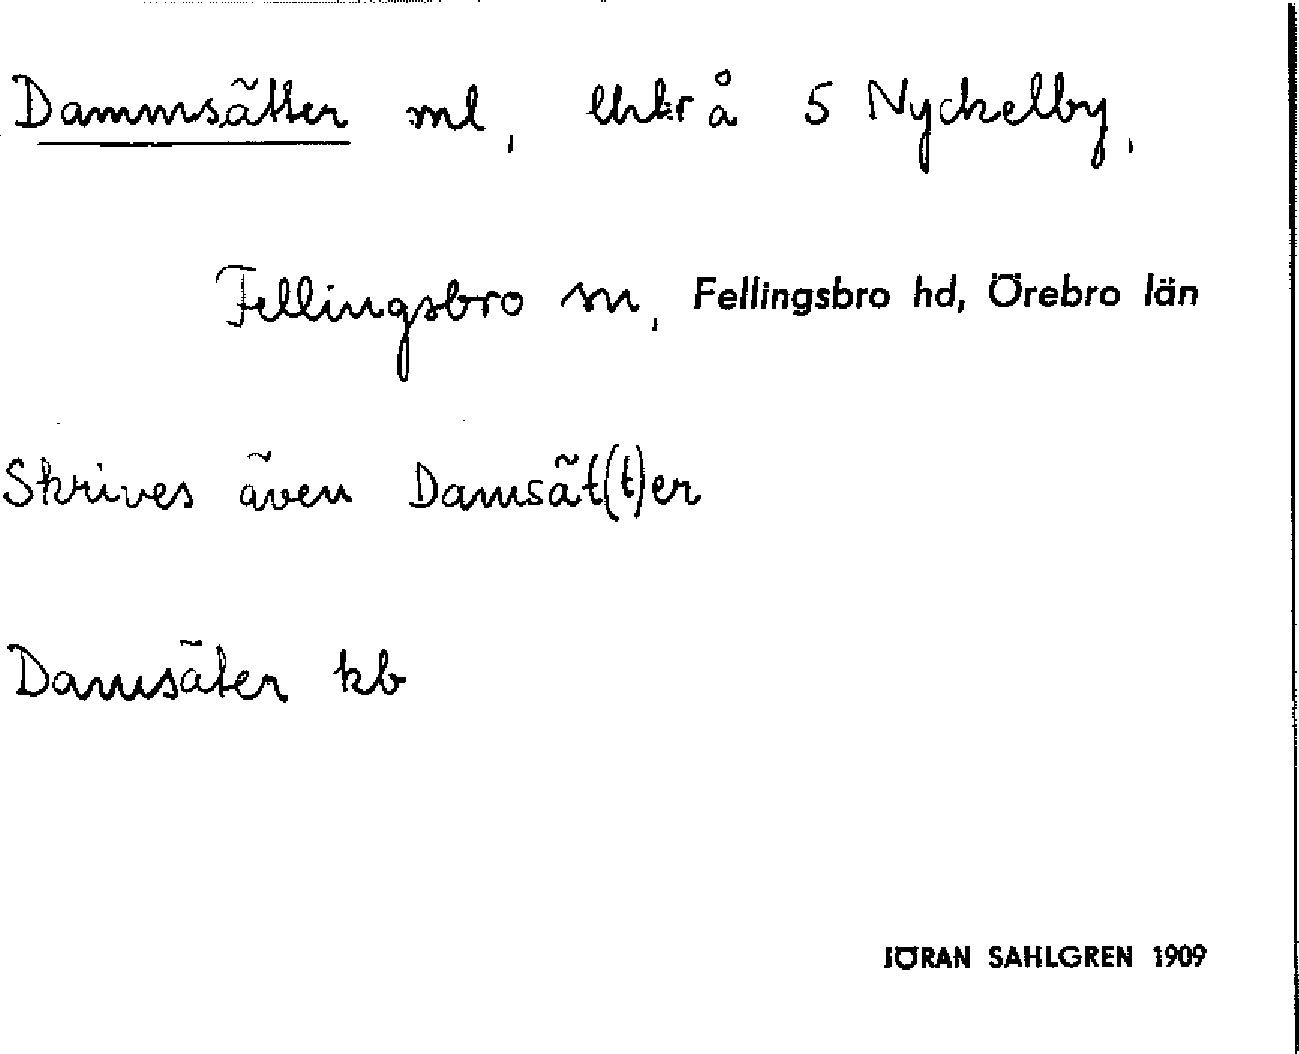 Dammsätter ml, å 5 Nyckelby,
Fellingsbro sn, Fellingsbro hd, Örebro län
Skrives även Damsät(t)er
Damsäter kb
JÖRAN SAHLGREN 1909